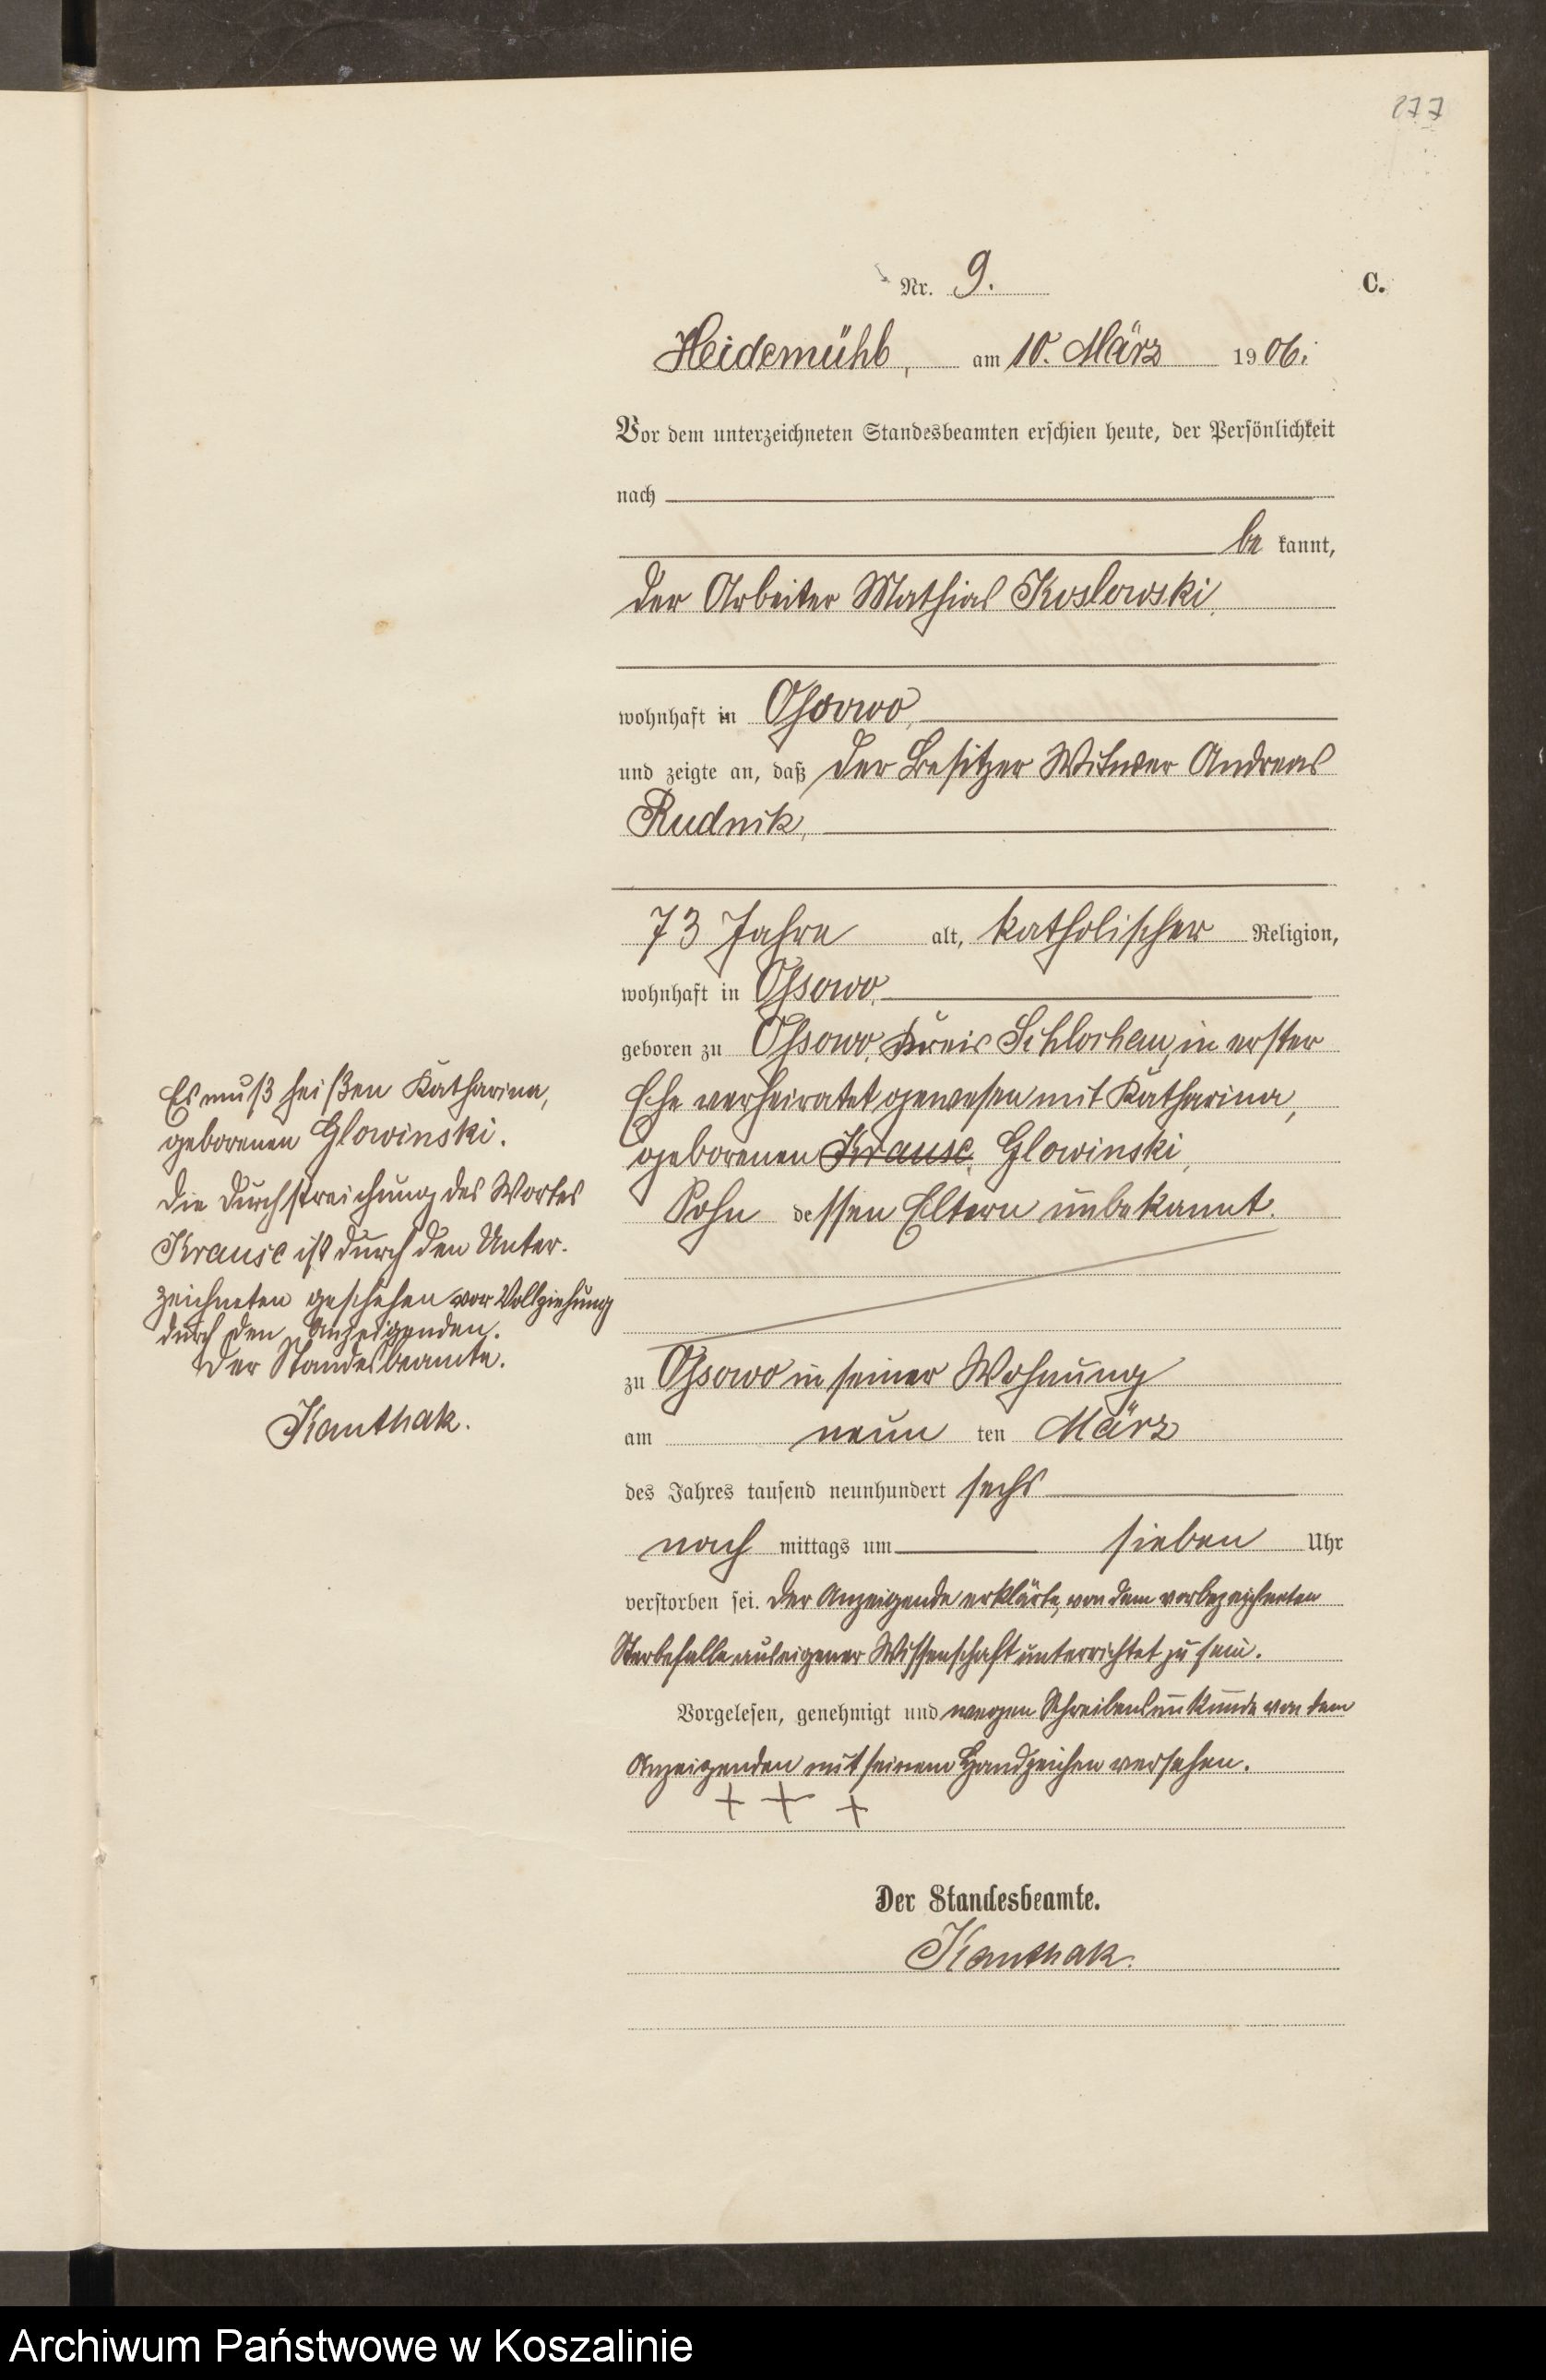 277
Nr. 9.
C.
Heidemühl, am 10. März 1906.
Vor dem unterzeichneten Standesbeamten erschien heute, der Persönlichkeit
nach
be kannt,
der Arbeiter Mathias Koslowski,
wohnhaft in Ossowo,
und zeigte an, daß der Besitzer Witwer Andreas
Rudnik,
73 Jahre alt, katholischer Religion,
wohnhaft in Ossowo,
geboren zu Ossowo, Kreis Schlochau, in erster
Ehe verheiratet gewesen mit Katharina,
geborenen Krause, Glowinski,
Sohn dessen Eltern unbekannt.
Es muß heißen Katharina,
geborenen Glowinski.
Die Durchstreichung des Wortes
Krause ist durch den Unter-
zeichneten geschehen vor Vollziehung
durch den Anzeigenden.
Der Standesbeamte.
Kanthak.
zu Ossowo in seiner Wohnung
am neun ten März
des Jahres tausend neunhundert sechs
nach mittags um sieben Uhr
verstorben sei. Der Anzeigende erklärte, von dem vorbezeichneten
Sterbefalle aus eigener Wissenschaft unterrichtet zu sein.
Vorgelesen, genehmigt und wegen Schreibensunkunde von dem
Anzeigenden mit seinem Handzeichen versehen.
+ + +
Der Standesbeamte.
Kanthak.
Archiwum Państwowe w Koszalinie